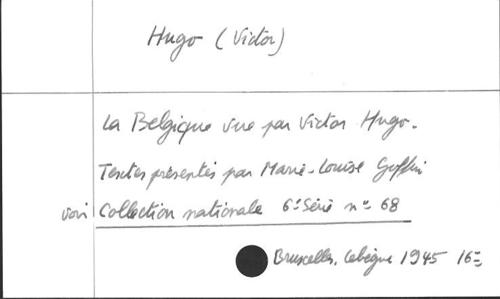 Hugo (Victor)
La Belgique vue par Victor Hugo.
Textes présentés par Marie-Louise Goffin
voir Collection nationale 6e Série n° 68
Bruxelles, Lebègue 1945 16=